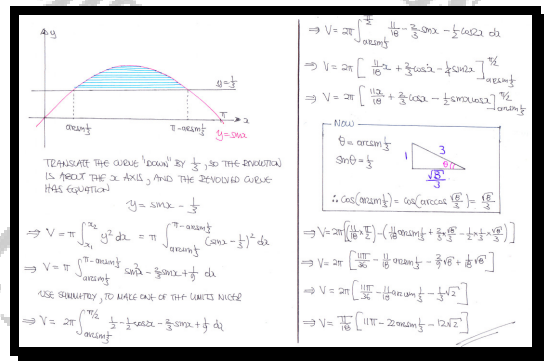 y
y=1/3
π
x
arcsin 1/3
π-arcsin 1/3
y=sinx
TRANSLATE THE CURVE "DOWN" BY 1/3, SO THE REVOLUTION
IS ABOUT THE x AXIS, AND THE REVOLVED CURVE
HAS EQUATION
y = sinx - 1/3
⇒ V = π ∫_{x₁}^{x₂} y² dx = π ∫_{arcsin 1/3}^{π-arcsin 1/3} (sinx - 1/3)² dx
⇒ V = π ∫_{arcsin 1/3}^{π-arcsin 1/3} sin²x - 2/3 sinx + 1/9 dx
USE SYMMETRY, TO MAKE ONE OF THE LIMITS NICER
⇒ V = 2π ∫_{arcsin 1/3}^{π/2} 1/2 - 1/2 cos2x - 2/3 sinx + 1/9 dx
⇒ V = 2π ∫_{arcsin 1/3}^{π/2} 11/18 - 2/3 sinx - 1/2 cos2x dx
⇒ V = 2π [ 11/18 x + 2/3 cosx - 1/4 sin2x ]_{arcsin 1/3}^{π/2}
⇒ V = 2π [ 11x/18 + 2/3 cosx - 1/2 sinxcosx ]_{arcsin 1/3}^{π/2}
NOW
θ = arcsin 1/3
sinθ = 1/3
1
3
θ
√8
∴ cos(arcsin 1/3) = cos(arccos √8/3) = √8/3
⇒ V = 2π [ (11/18 × π/2) - ( 11/18 arcsin 1/3 + 2/3 × √8/3 - 1/2 × 1/3 × √8/3 ) ]
⇒ V = 2π [ 11π/36 - 11/18 arcsin 1/3 - 2/9 √8 + 1/18 √8 ]
⇒ V = 2π [ 11π/36 - 11/18 arcsin 1/3 - 1/3 √2 ]
⇒ V = π/18 [ 11π - 22arcsin 1/3 - 12√2 ]